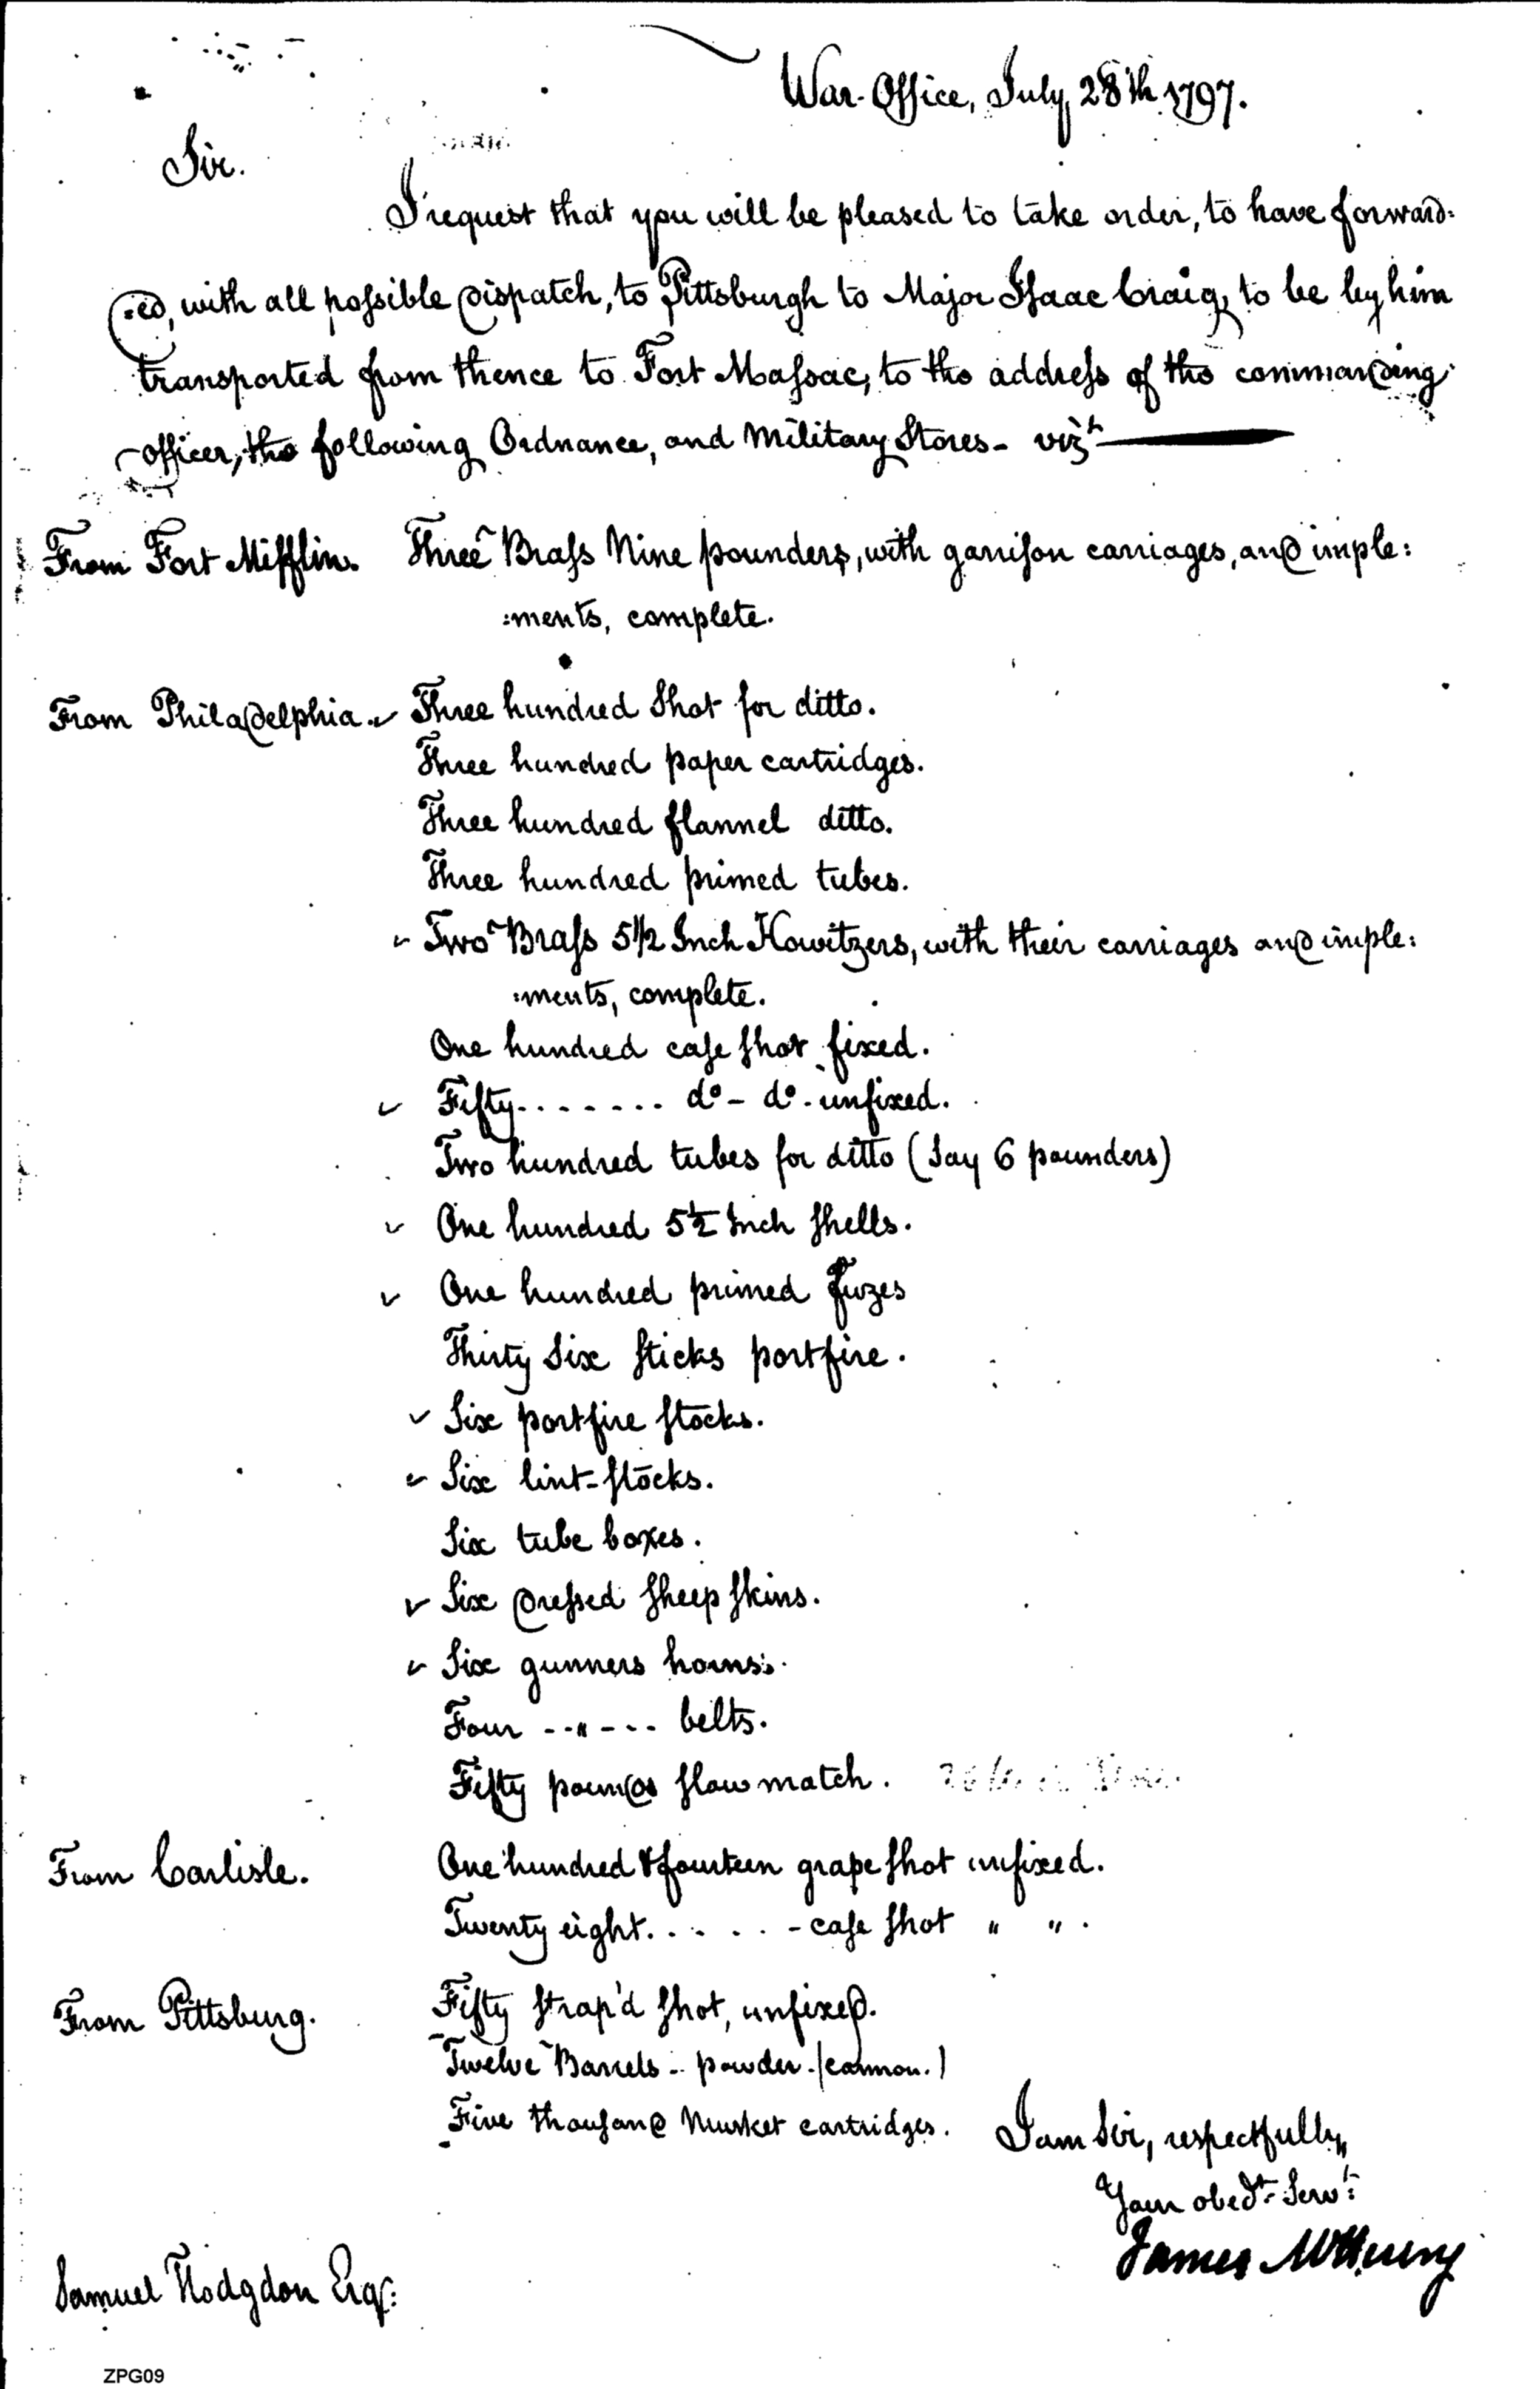 War-Office, July 28th 1797.
Sir.
I request that you will be pleased to take order, to have forward:
:ed, with all possible dispatch, to Pittsburgh to Major Isaac Craig, to be by him
transported from thence to Fort Massac, to the address of the commanding
officer, the following Ordnance, and Military Stores - vizt
From Fort Mifflin. Three Brass Nine pounders, with garrison carriages, and imple:
:ments, complete.
From Philadelphia. Three hundred Shot for ditto.
Three hundred paper cartridges.
Three hundred flannel ditto.
Three hundred primed tubes.
Two Brass 5 1/2 Inch Howitzers, with their carriages and imple:
:ments, complete.
One hundred case shot fixed.
Fifty........ do - do. unfixed.
Two hundred tubes for ditto (Say 6 pounders)
One hundred 5 1/2 Inch Shells.
One hundred primed fuzes
Thirty Six Sticks portfire.
Six portfire Stocks.
Six lint-Stocks.
Six tube boxes.
Six dressed Sheep Skins.
Six gunners horns.
Four --"--- belts.
Fifty pounds slow match.
From Carlisle. One hundred & fourteen grape shot unfixed.
Twenty eight...... - case shot " ".
From Pittsburg. Fifty Strap'd shot, unfixed.
Twelve Barrels - powder. (cannon.)
Five thousand Musket cartridges.
I am Sir, respectfully,
Your obedt. Servt:
James McHenry
Samuel Hodgdon Esqr:
ZPG09